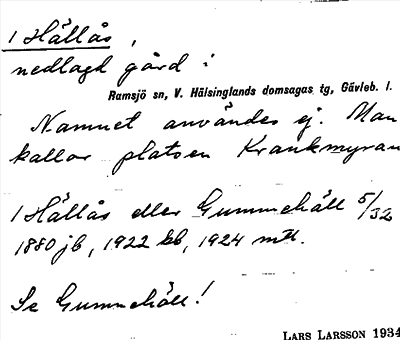 1 Hällås,
nedlagd gård i
Ramsjö sn, V. Hälsinglands domsagas tg, Gävleb. l.
Namnet användes ej. Man
kallar platsen Krankmyran
1 Hällås eller Gummehäll 5/32
1880 jb, 1922 kb, 1924 mtl.
Se Gummehäll!
LARS LARSSON 1934